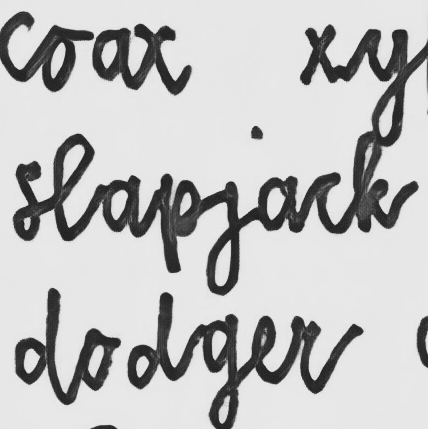 coax xy
slapjack
dodger